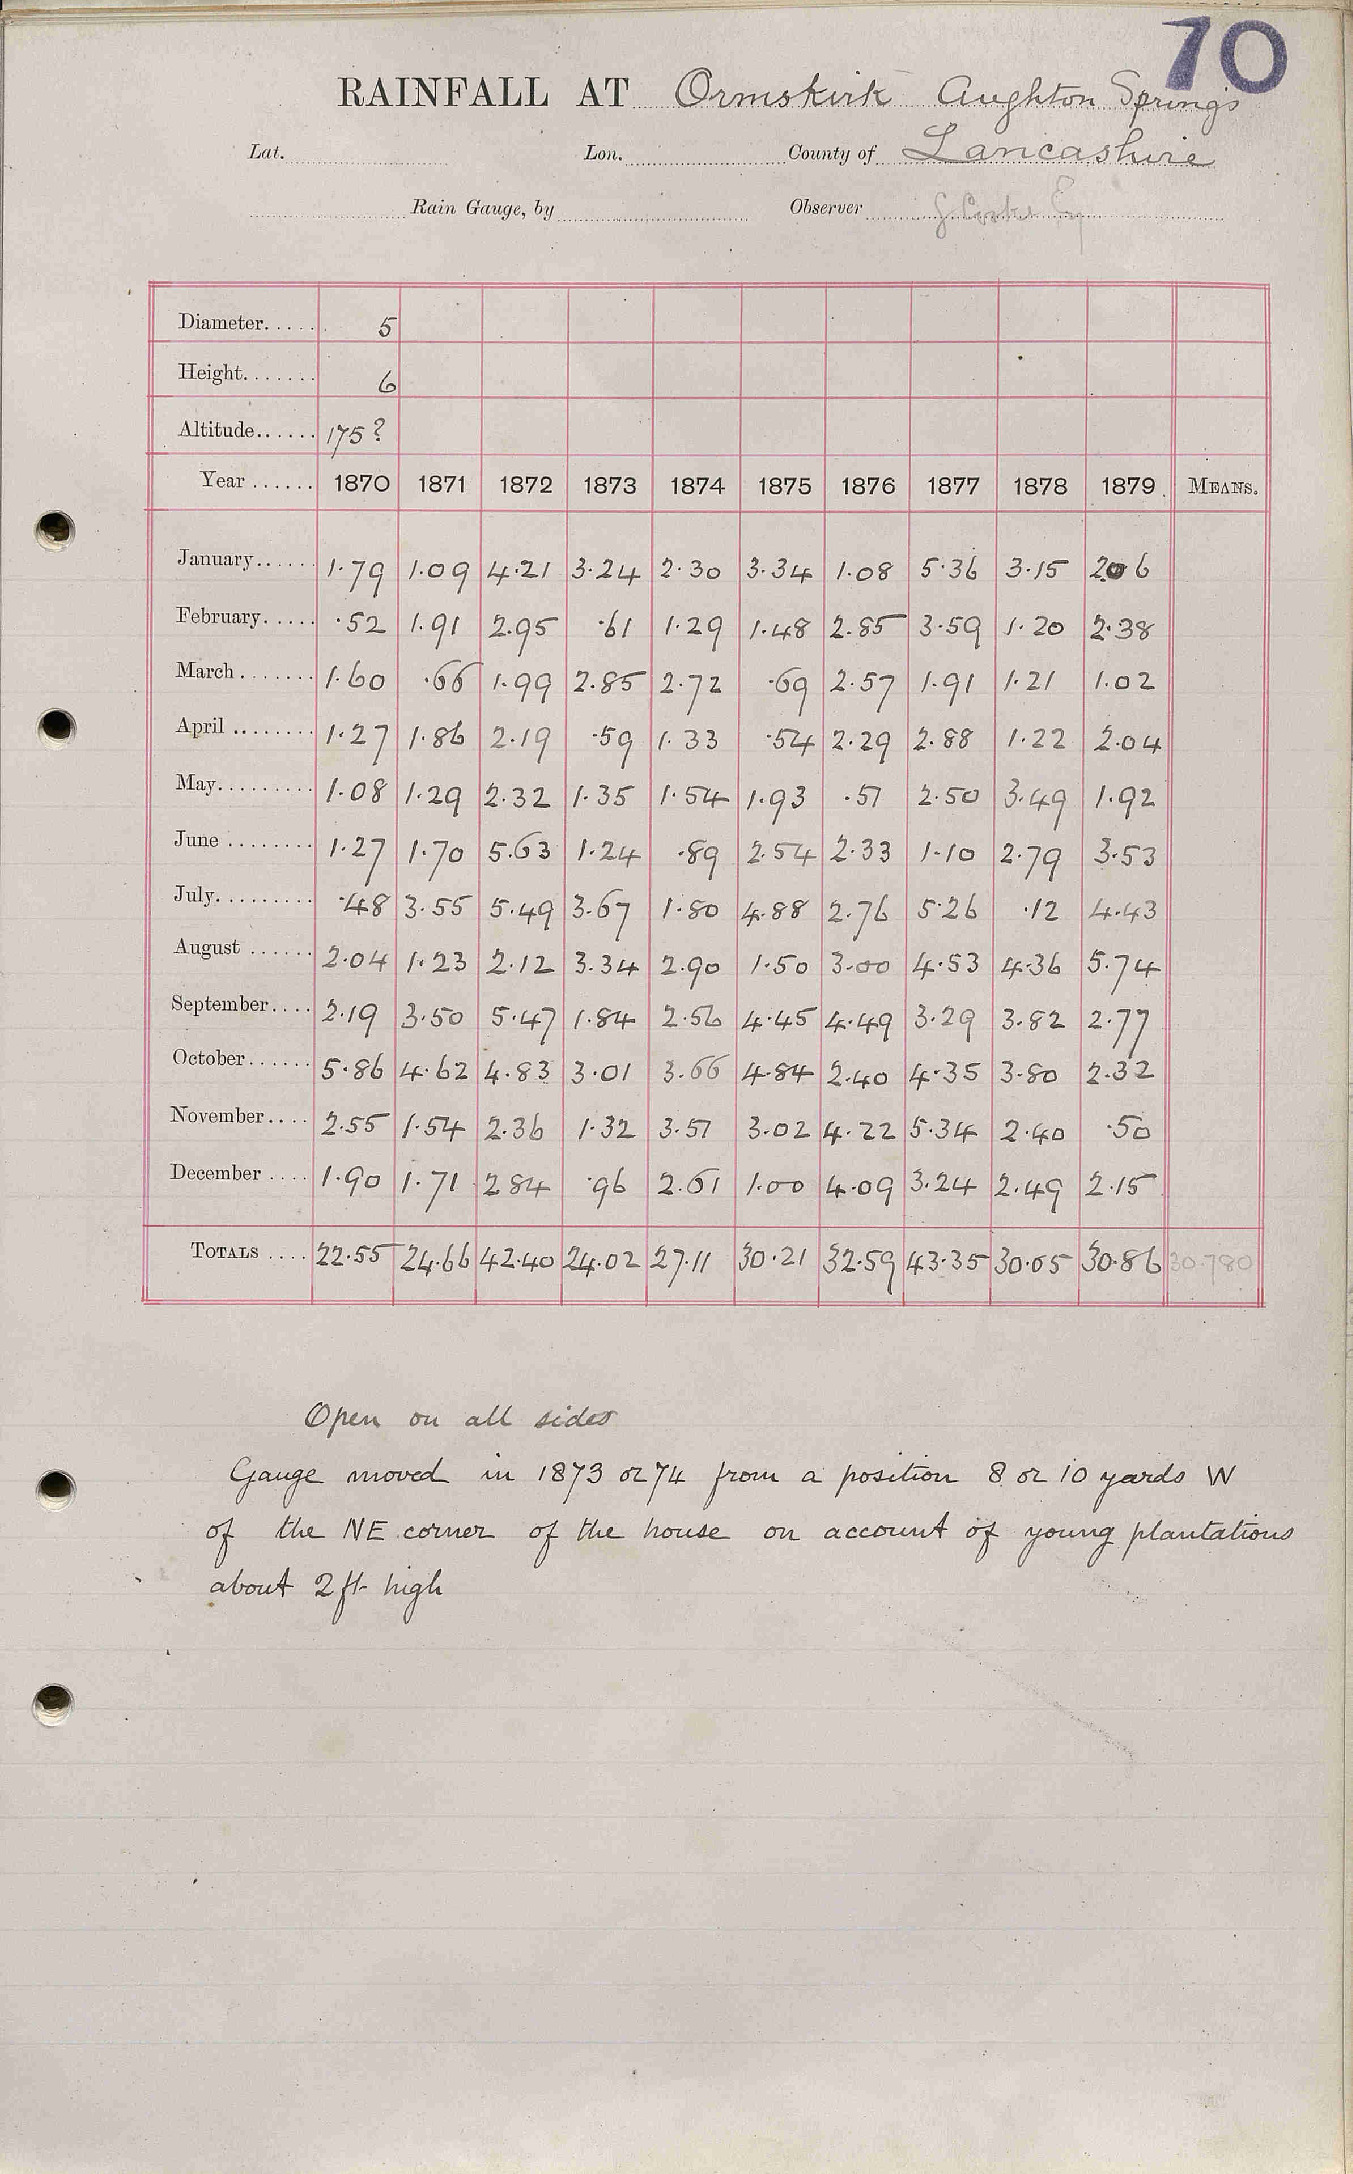 70
RAINFALL AT Ormskirk Aughton Springs
Lat. Lon. County of Lancashire
Rain Gauge, by Observer
Diameter 5
Height 6
Altitude 175?
Year 1870 1871 1872 1873 1874 1875 1876 1877 1878 1879 MEANS.
January 1.79 1.09 4.21 3.24 2.30 3.34 1.08 5.36 3.15 2.06
February .52 1.91 2.95 .61 1.29 1.48 2.85 3.59 1.20 2.38
March 1.60 .66 1.99 2.85 2.72 .69 2.57 1.91 1.21 1.02
April 1.27 1.86 2.19 .59 1.33 .54 2.29 2.88 1.22 2.04
May 1.08 1.29 2.32 1.35 1.54 1.93 .51 2.50 3.49 1.92
June 1.27 1.70 5.63 1.24 .89 2.54 2.33 1.10 2.79 3.53
July .48 3.55 5.49 3.67 1.80 4.88 2.76 5.26 .12 4.43
August 2.04 1.23 2.12 3.34 2.90 1.50 3.00 4.53 4.36 5.74
September 2.19 3.50 5.47 1.84 2.56 4.45 4.49 3.29 3.82 2.77
October 5.86 4.62 4.83 3.01 3.66 4.84 2.40 4.35 3.80 2.32
November 2.55 1.54 2.36 1.32 3.51 3.02 4.22 5.34 2.40 .50
December 1.90 1.71 2 84 .96 2.61 1.00 4.09 3.24 2.49 2.15
TOTALS 22.55 24.66 42.40 24.02 27.11 30.21 32.59 43.35 30.05 30.86 30.780
Open on all sides
Gauge moved in 1873 or 74 from a position 8 or 10 yards W
of the NE corner of the house on account of young plantations
about 2 ft high